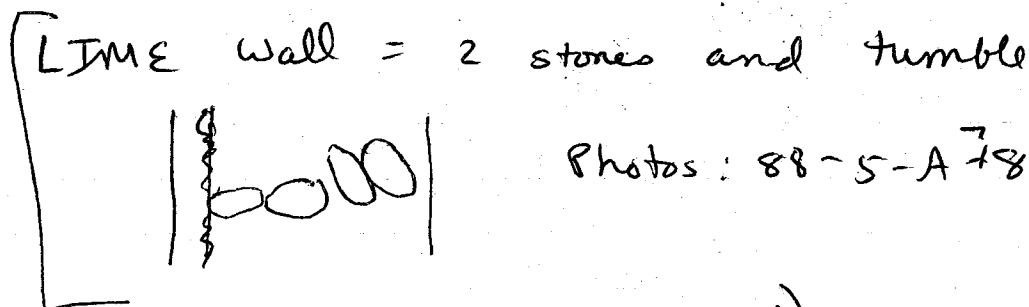 LIME wall = 2 stones and tumble
Photos: 88-5-A